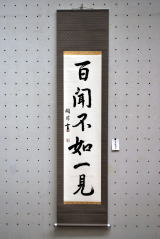 百聞不如一見